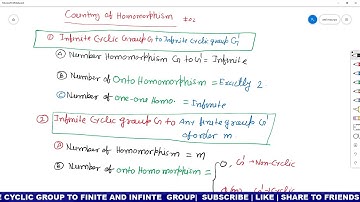 Counting of Homomorphism
① Infinite Cyclic Group G to Infinite cyclic group G'
Ⓐ Number Homomorphism G to G' = Infinite
Ⓑ Number of Onto Homomorphism = Exactly 2
Ⓒ Number of one-one Homo. = Infinite
② Infinite Cyclic group G to Any finite group G'
of order m
Ⓐ Number of Homomorphism = m
Ⓑ Number of onto Homomorphism =
0, G' → Non-Cyclic
E CYCLIC GROUP TO FINITE AND INFINITE GROUP| SUBSCRIBE | LIKE | SHARE TO FRIENDS